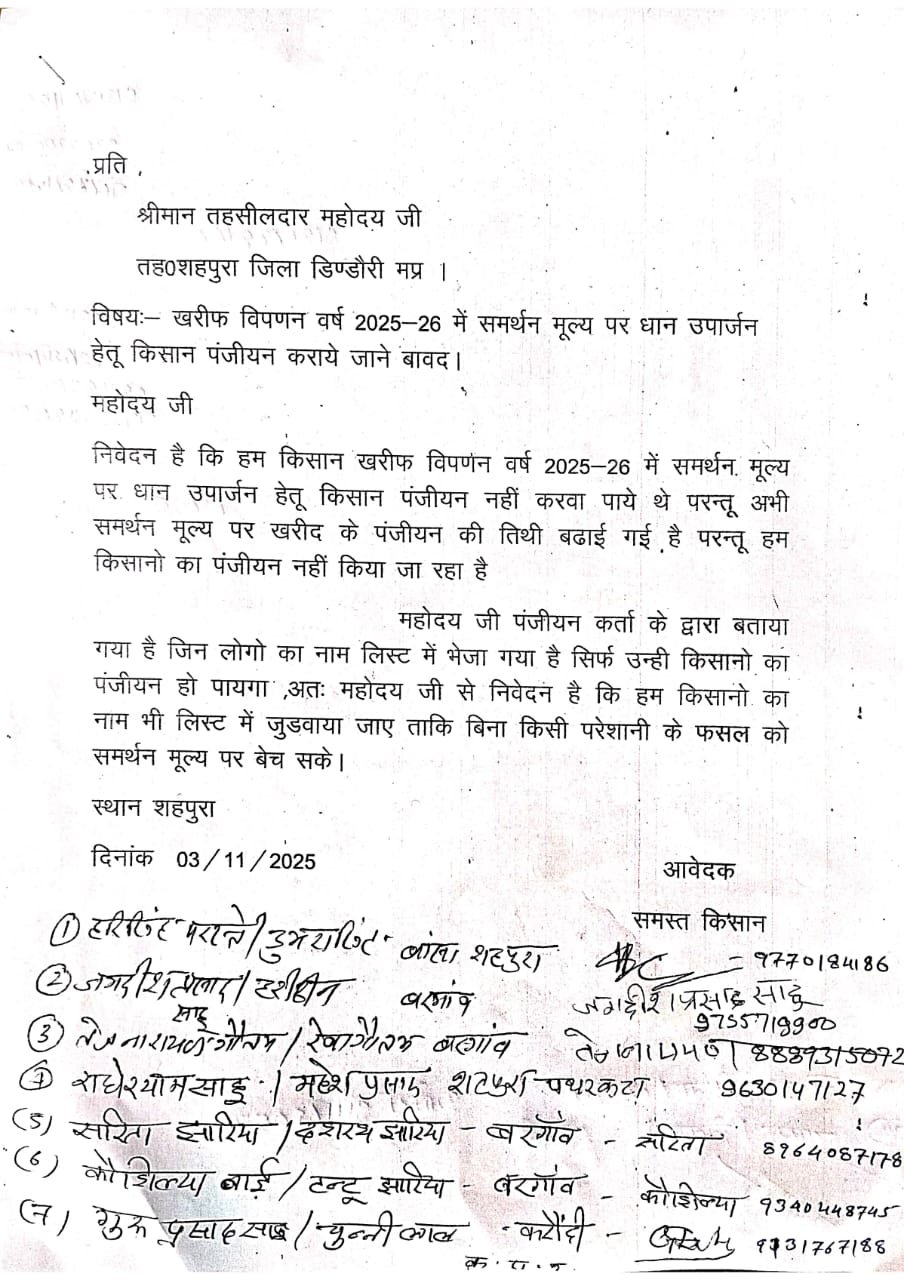 प्रति ,
श्रीमान तहसीलदार महोदय जी
तह0शहपुरा जिला डिण्डौरी मप्र ।
विषयः– खरीफ विपणन वर्ष 2025–26 में समर्थन मूल्य पर धान उपार्जन
हेतू किसान पंजीयन कराये जाने बावद।
महोदय जी
निवेदन है कि हम किसान खरीफ विपणन वर्ष 2025–26 में समर्थन मूल्य
पर धान उपार्जन हेतू किसान पंजीयन नहीं करवा पाये थे परन्तू अभी
समर्थन मूल्य पर खरीद के पंजीयन की तिथी बढाई गई है परन्तू हम
किसानो का पंजीयन नहीं किया जा रहा है
महोदय जी पंजीयन कर्ता के द्वारा बताया
गया है जिन लोगो का नाम लिस्ट में भेजा गया है सिर्फ उन्ही किसानो का
पंजीयन हो पायगा ,अतः महोदय जी से निवेदन है कि हम किसानो का
नाम भी लिस्ट में जुडवाया जाए ताकि बिना किसी परेशानी के फसल को
समर्थन मूल्य पर बेच सके।
स्थान शहपुरा
दिनांक 03/11/2025
आवेदक
समस्त किसान
(1) शहपुरा – 9770184186
(2) जगदीश प्रसाद साहू / बरगांव जगदीश प्रसाद साहू
9755719900
(3) तेजनारायण गौतम / रेवा गौतम बरगांव 8889315072
(4) राधेश्याम साहू / महेश प्रसाद शहपुरा पथरकटा 9630147127
(5) सरिता झारिया / दशरथ झारिया – बरगाँव – सरिता 8964087178
(6) कौशिल्या बाई / टन्टू झारिया – बरगांव – कौशिल्या 9340448745
(7) गुरु प्रसाद साहू / मुन्नी लाल – करौंदी – 9131767188